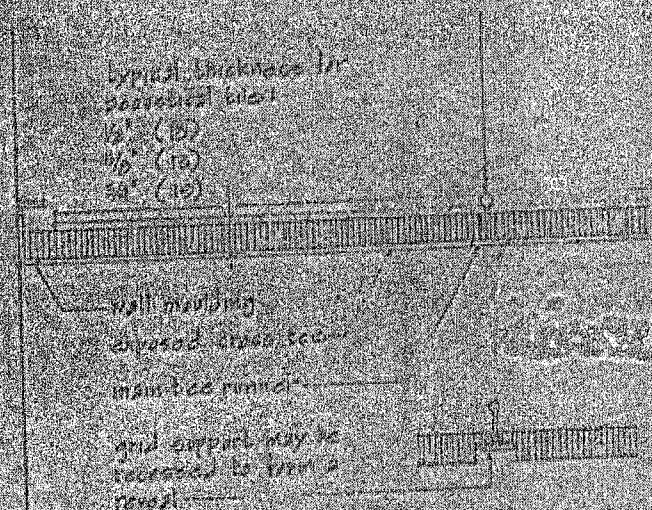 typical thickness for
acoustical tiles:
1/2" (13)
5/8" (16)
3/4" (19)
wall moulding
exposed cross tee
main tee runner
grid support may be
recessed to form a
reveal